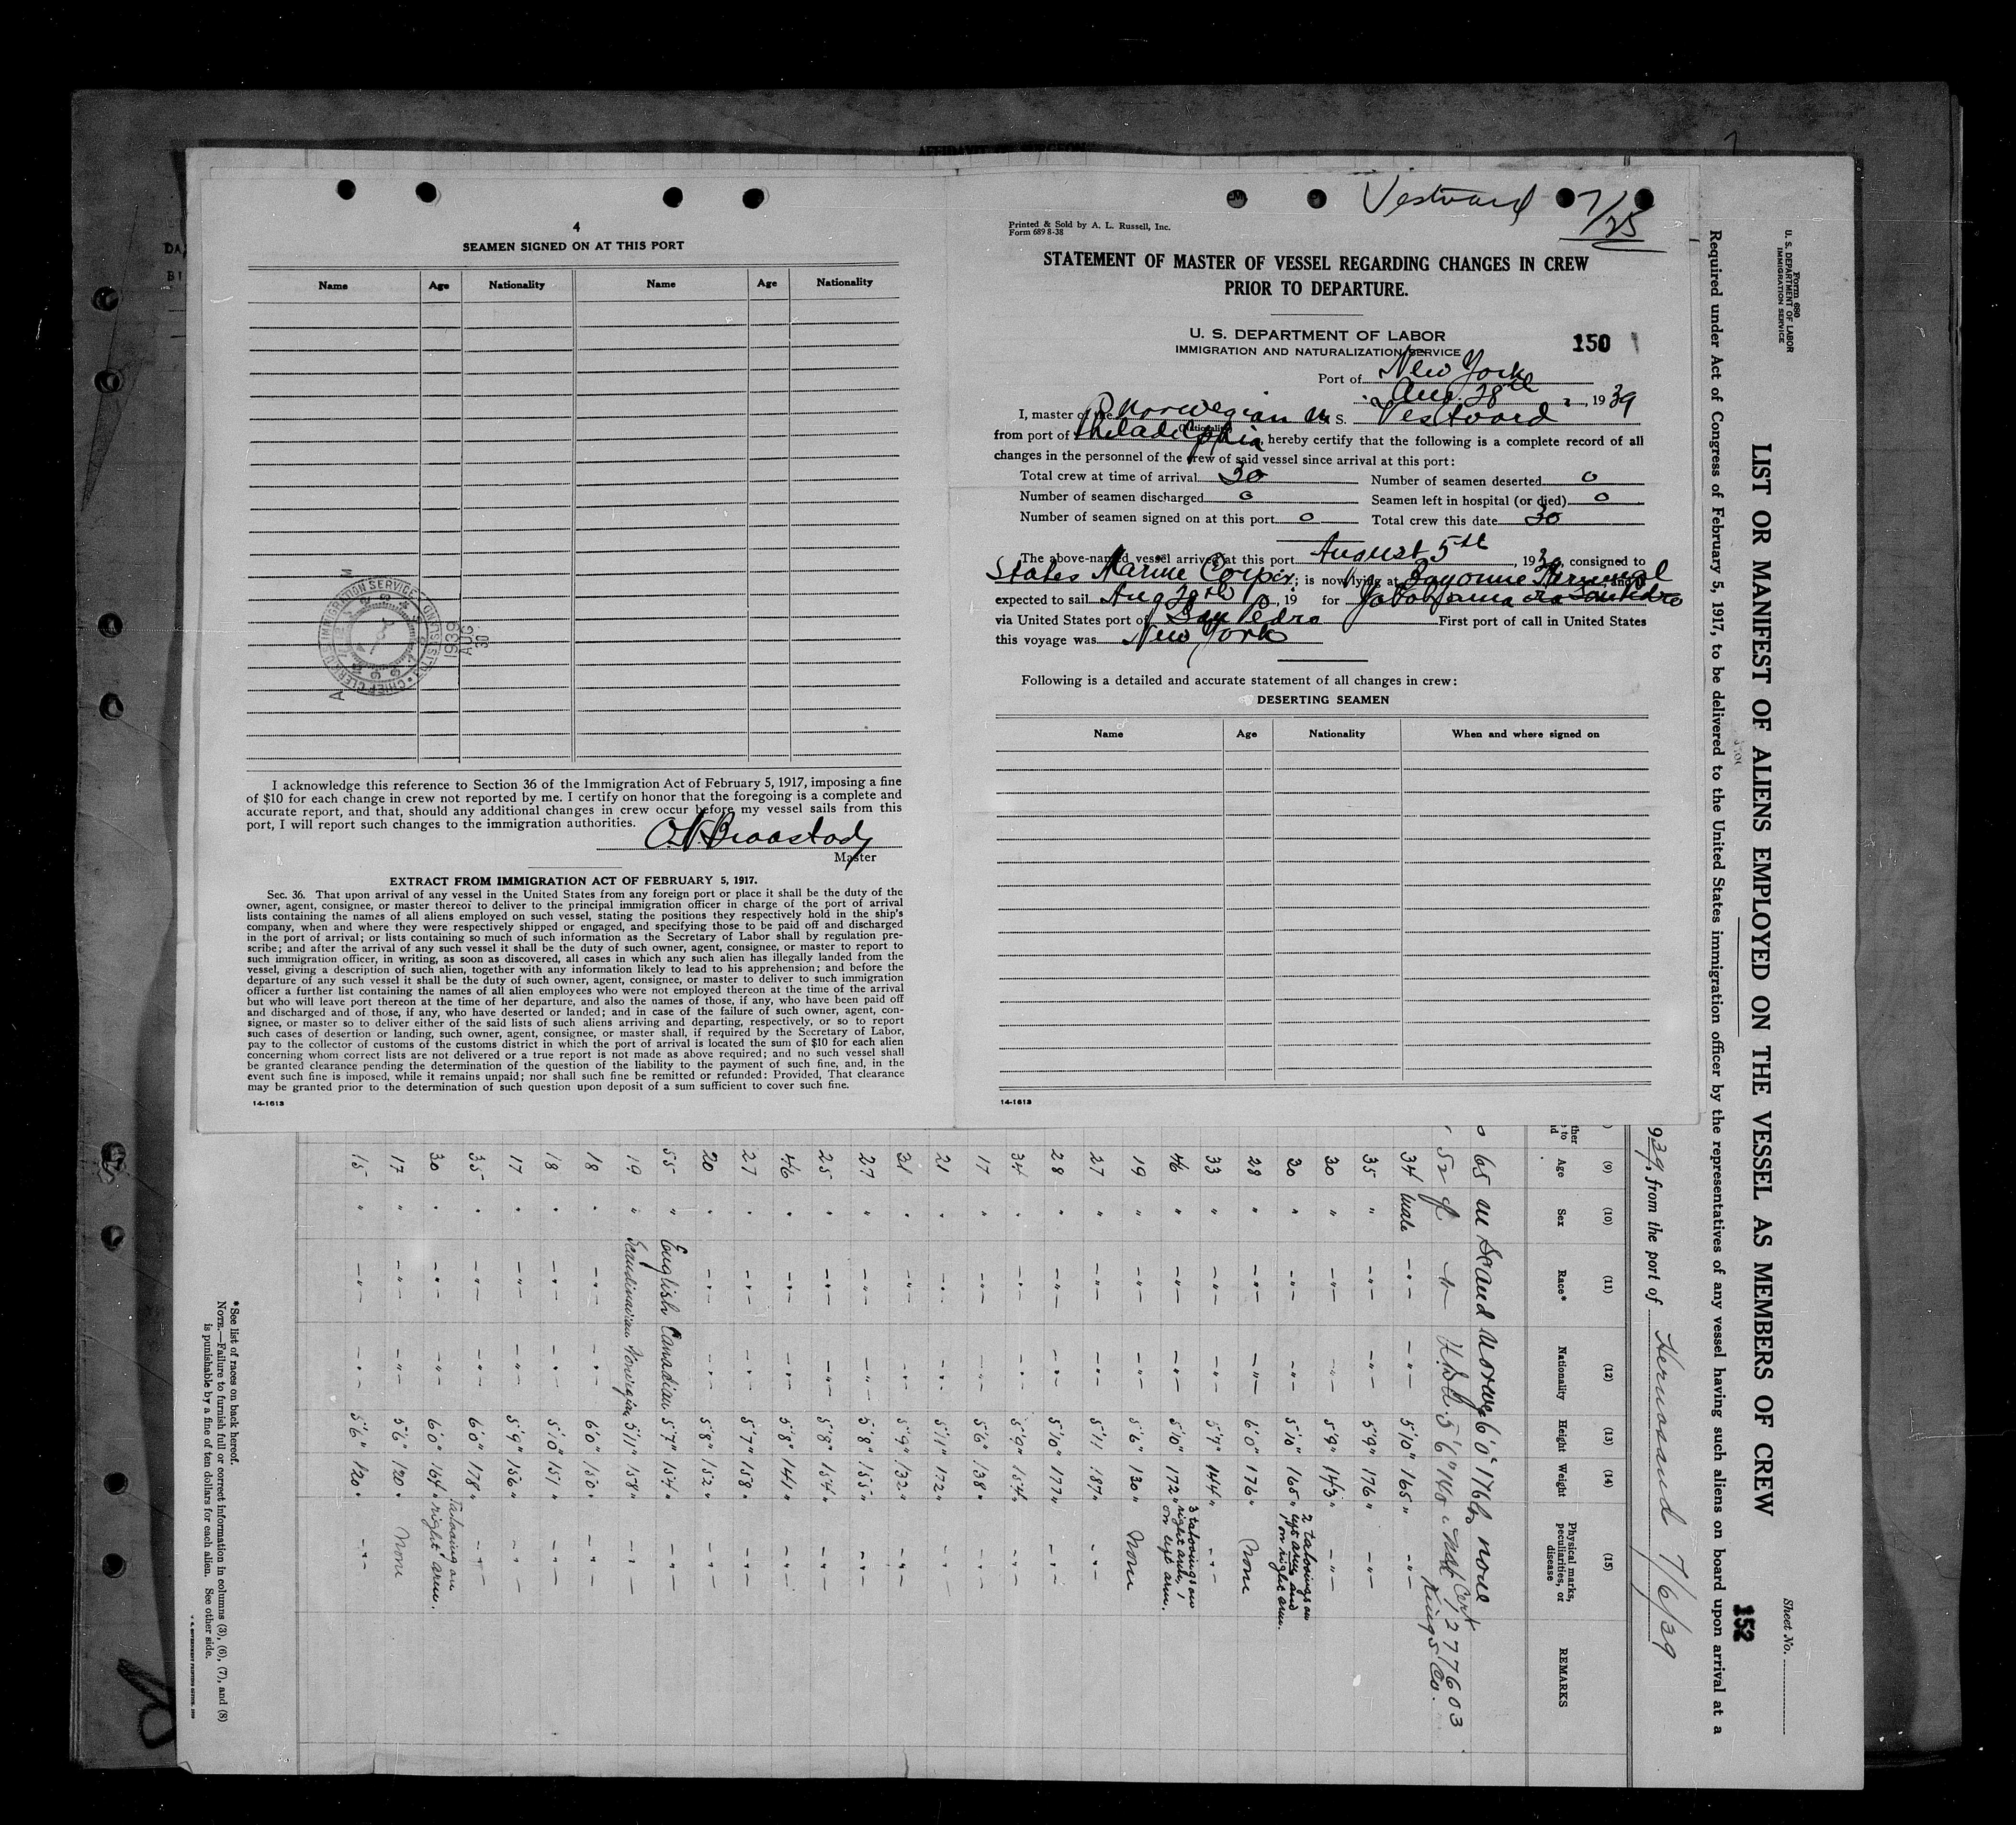 AFFIDAVIT OF SURGEON
4
SEAMEN SIGNED ON AT THIS PORT
Name Age Nationality Name Age Nationality
IMMIGRATION SERVICE
CHIEF CLERK
1939
AUG
30
I acknowledge this reference to Section 36 of the Immigration Act of February 5, 1917, imposing a fine
of $10 for each change in crew not reported by me. I certify on honor that the foregoing is a complete and
accurate report, and that, should any additional changes in crew occur before my vessel sails from this
port, I will report such changes to the immigration authorities.
Master
EXTRACT FROM IMMIGRATION ACT OF FEBRUARY 5, 1917.
Sec. 36. That upon arrival of any vessel in the United States from any foreign port or place it shall be the duty of the
owner, agent, consignee, or master thereof to deliver to the principal immigration officer in charge of the port of arrival
lists containing the names of all aliens employed on such vessel, stating the positions they respectively hold in the ship's
company, when and where they were respectively shipped or engaged, and specifying those to be paid off and discharged
in the port of arrival; or lists containing so much of such information as the Secretary of Labor shall by regulation pre-
scribe; and after the arrival of any such vessel it shall be the duty of such owner, agent, consignee, or master to report to
such immigration officer, in writing, as soon as discovered, all cases in which any such alien has illegally landed from the
vessel, giving a description of such alien, together with any information likely to lead to his apprehension; and before the
departure of any such vessel it shall be the duty of such owner, agent, consignee, or master to deliver to such immigration
officer a further list containing the names of all alien employees who were not employed thereon at the time of the arrival
but who will leave port thereon at the time of her departure, and also the names of those, if any, who have been paid off
and discharged and of those, if any, who have deserted or landed; and in case of the failure of such owner, agent, con-
signee, or master so to deliver either of the said lists of such aliens arriving and departing, respectively, or so to report
such cases of desertion or landing, such owner, agent, consignee, or master shall, if required by the Secretary of Labor,
pay to the collector of customs of the customs district in which the port of arrival is located the sum of $10 for each alien
concerning whom correct lists are not delivered or a true report is not made as above required; and no such vessel shall
be granted clearance pending the determination of the question of the liability to the payment of such fine, and, in the
event such fine is imposed, while it remains unpaid; nor shall such fine be remitted or refunded: Provided, That clearance
may be granted prior to the determination of such question upon deposit of a sum sufficient to cover such fine.
14-1613
Vestvard 7/25
Printed & Sold by A. L. Russell, Inc.
Form 689 8-38
STATEMENT OF MASTER OF VESSEL REGARDING CHANGES IN CREW
PRIOR TO DEPARTURE.
U. S. DEPARTMENT OF LABOR
IMMIGRATION AND NATURALIZATION SERVICE
150
Port of New York
Aug. 28th, 1939
I, master of the Norwegian M. S. Vestvard
(Nationality)
from port of Philadelphia, hereby certify that the following is a complete record of all
changes in the personnel of the crew of said vessel since arrival at this port:
Total crew at time of arrival 30 Number of seamen deserted 0
Number of seamen discharged 0 Seamen left in hospital (or died) 0
Number of seamen signed on at this port 0 Total crew this date 30
The above-named vessel arrived at this port August 5th, 1939, consigned to
States Marine Corp.; is now lying at Bayonne Terminal, and is
expected to sail Aug 29th, 19 for Yokohama via San Pedro
via United States port of San Pedro First port of call in United States
this voyage was New York
Following is a detailed and accurate statement of all changes in crew:
DESERTING SEAMEN
Name Age Nationality When and where signed on
14-1613
Form 680
U. S. DEPARTMENT OF LABOR
IMMIGRATION SERVICE
Sheet No.
LIST OR MANIFEST OF ALIENS EMPLOYED ON THE VESSEL AS MEMBERS OF CREW
152
Required under Act of Congress of February 5, 1917, to be delivered to the United States immigration officer by the representatives of any vessel having such aliens on board upon arrival at a
939, from the port of Hernosand 7/6/39
(9) (10) (11) (12) (13) (14) (15)
Age Sex Race* Nationality Height Weight Physical marks, peculiarities, or disease REMARKS
65 m Scand Norweg 6'0" 176 lb none
52 f -"- U.S.A. 5'6" 140 " Natf Cert 277603 Kings Co.
34 Male -"- -"- 5'10" 165 " -"-
35 " -"- -"- 5'9" 176 " -"-
30 " -"- -"- 5'9" 143 " -"-
20 " -"- -"- 5'10" 165 " 2 tatooings on left arm and 1 on right arm.
28 " -"- -"- 6'0" 176 " None
33 " -"- -"- 5'9" 144 " -"-
46 " -"- -"- 5'10" 172 " 3 tatooings on right arm, 1 on left arm.
19 " -"- -"- 5'6" 130 " None
27 " -"- -"- 5'11 187 " -"-
28 " -"- -"- 5'10" 177 " -"-
34 " -"- -"- 5'9" 154 " -"-
17 " -"- -"- 5'6" 138 " -"-
21 " -"- -"- 5'11" 172 " -"-
31 " -"- -"- 5'9" 132 " -"-
27 " -"- -"- 5'8" 155 " -"-
25 " -"- -"- 5'8" 154 " -"-
46 " -"- -"- 5'8" 141 " -"-
27 " -"- -"- 5'7" 138 " -"-
20 " -"- -"- 5'8" 152 " -"-
55 " English Canadian 5'7" 154 " -"-
19 " Scandinavian Norwegian 5'11" 158 " -"-
18 " -"- -"- 6'0" 150 " -"-
18 " -"- -"- 5'10" 151 " -"-
17 " -"- -"- 5'9" 156 " -"-
35 " -"- -"- 6'0" 178 " -"-
30 " -"- -"- 6'0" 164 " Tatooing on right arm.
17 " -"- -"- 5'6" 120 " None
15 " -"- -"- 5'6" 120 " -"-
*See list of races on back hereof.
NOTE.—Failure to furnish full or correct information in columns (3), (6), (7), and (8)
is punishable by a fine of ten dollars for each alien. See other side.